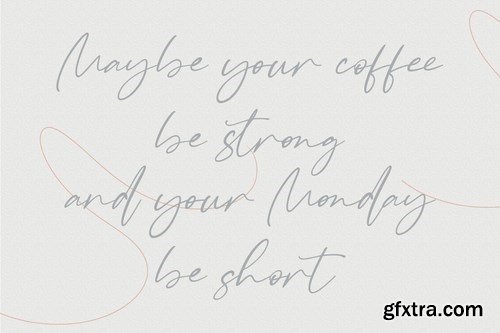 Maybe your coffee
be strong
and your Monday
be short
gfxtra.com